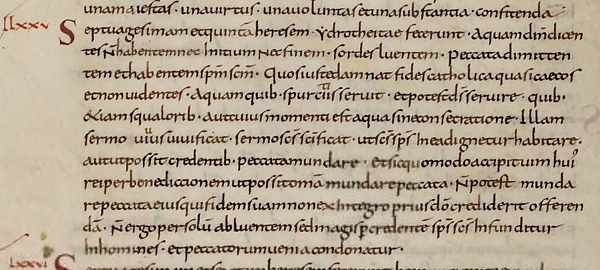 una maiestas · una virtus · una voluntas et una substantia · confitenda
lxxv Septuagesimam et quintam heresem · ydrotheitae fecerunt · Aquam dīm dicen
tes n̄ habentem nec Initium Nec finem · sordes luentem · peccata dimitten
tem et habentem sp̄m sc̄m · Quos iuste damnat fides catholica quasi caecos
et non videntes · Aquam quib · spurciis servit · et potest dīs servire · quib ·
&iam squaloribus · aut cuius momenti est aqua sine consecratione · Illam
sermo vivus vivificat · sermo sc̄s sc̄ificat · ut sc̄s sp̄s In ea dignetur habitare ·
aut ut possit credentib · peccata mundare · et sic quomodo accipit vim hui'
rei per benedictionem ut possit omnia mundare peccata · N̄ potest munda
re peccata eius qui fidem suam non ex Integro prius dō crediderit offeren
da · N̄ ergo per solum abluentem sed magis per credentem sp̄s sc̄s Infunditur
In homines · et peccatorum venia condonatur ·
lxxvi